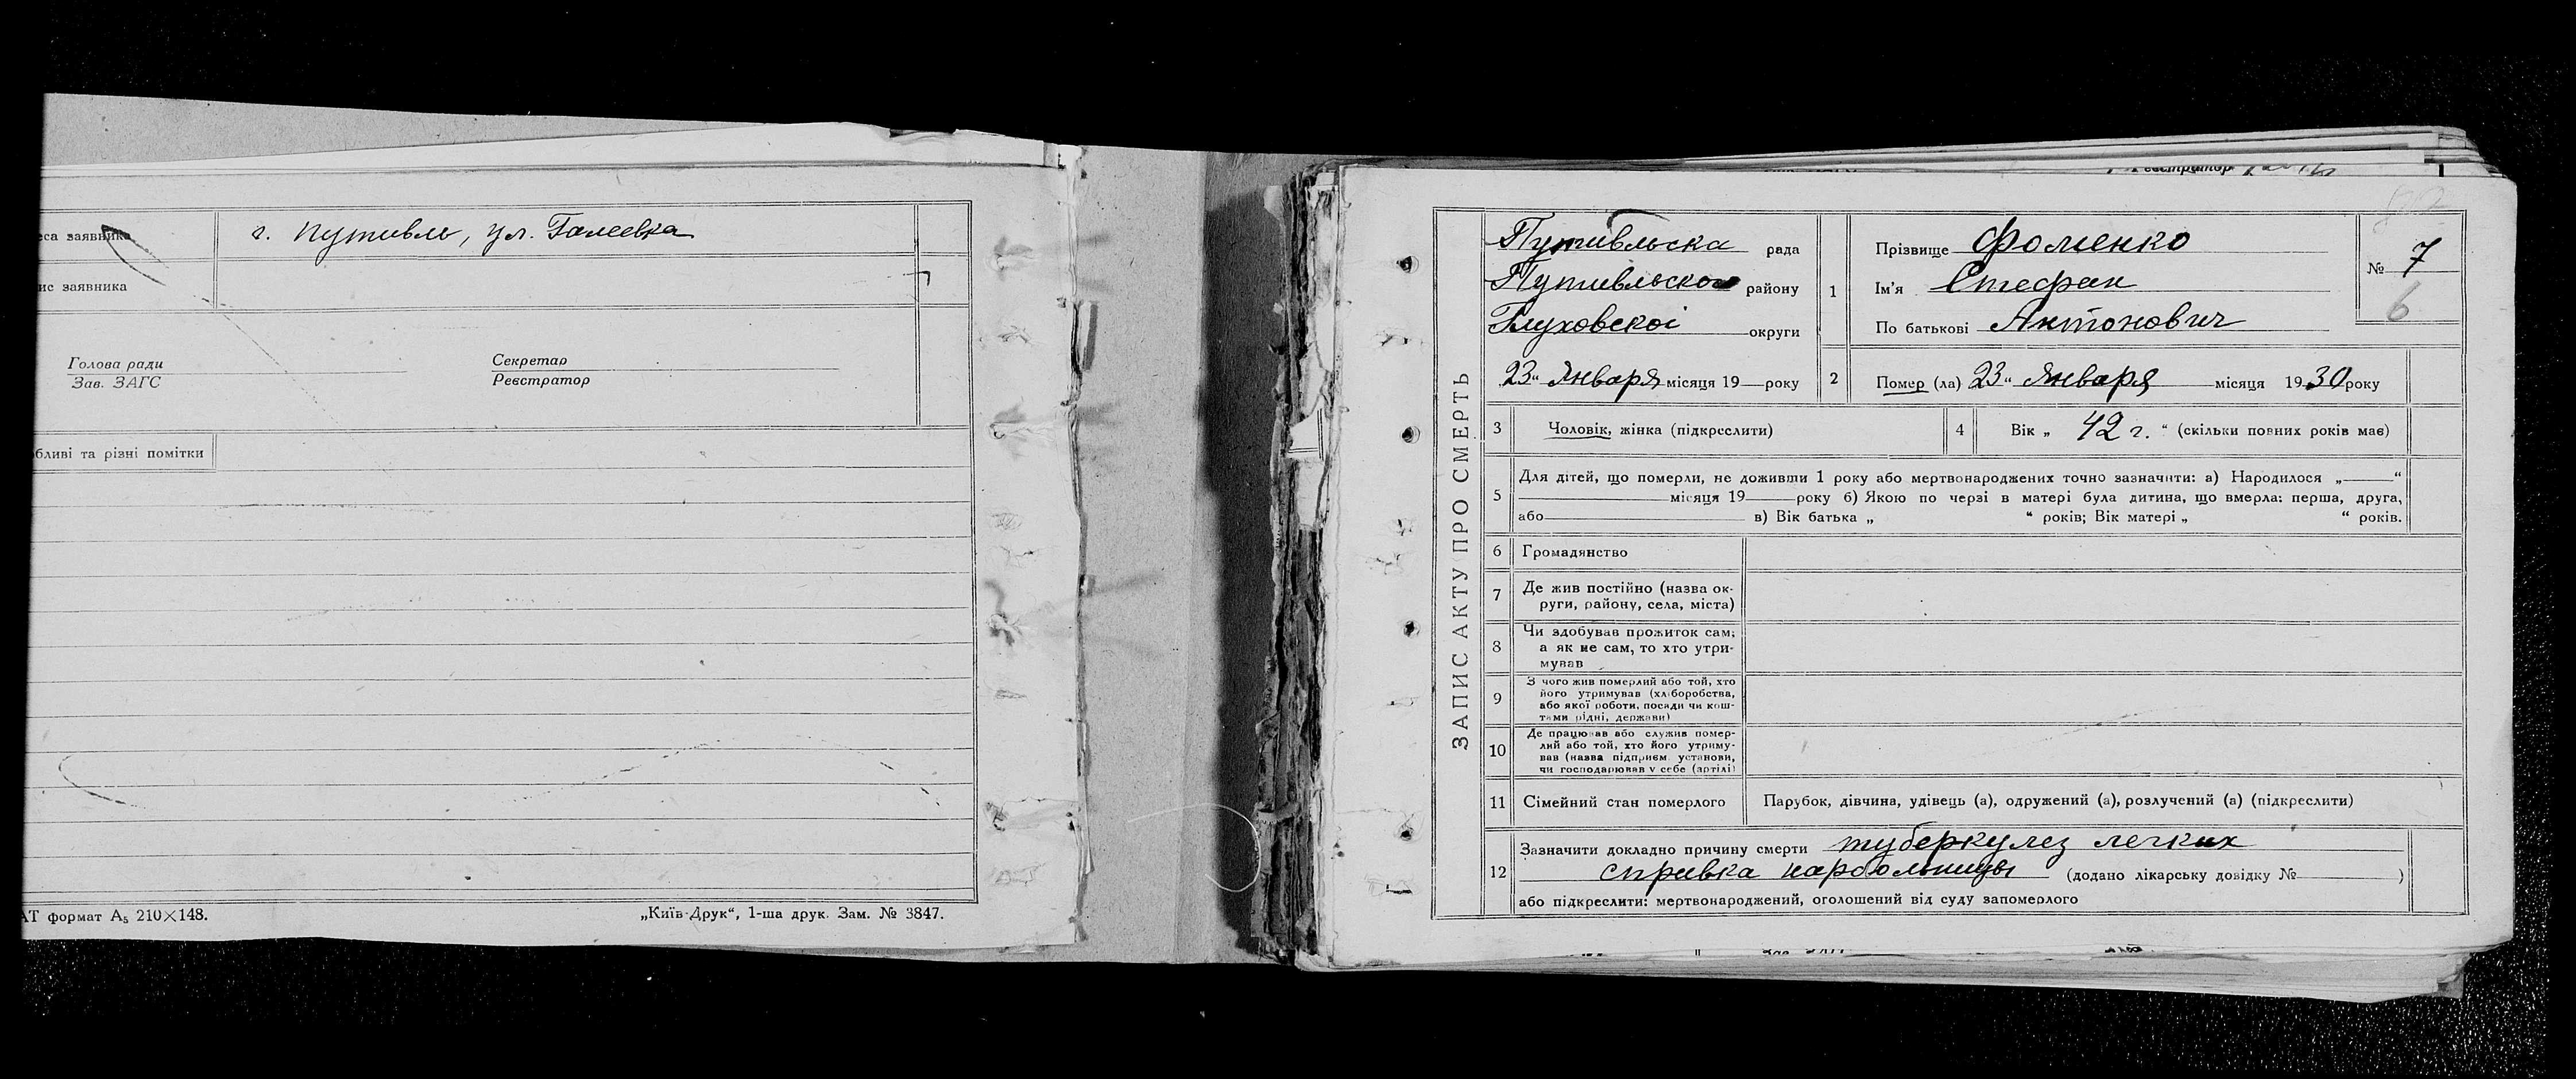 еса заявника г. Путивль, ул. Галеевка
ис заявника
Голова ради Секретар
Зав. ЗАГС Реєстратор
бливі та різні помітки
АТ формат А₅ 210×148. „Київ-Друк“, 1-ша друк. Зам. № 3847.
Реєстратор
ЗАПИС АКТУ ПРО СМЕРТЬ
Путивльска рада
Путивльской району
Глуховскоі округи
23“ Января місяця 19 року
1 Прізвище Фоменко
Ім'я Стефан
По батькові Антонович
№ 7
6
2 Помер (ла) 23“ Января місяця 1930 року
3 Чоловік, жінка (підкреслити) 4 Вік „ 42 г. “ (скільки повних років має)
5 Для дітей, що померли, не доживши 1 року або мертвонароджених точно зазначити: а) Народилося „ “
місяця 19 року б) Якою по черзі в матері була дитина, що вмерла: перша, друга,
або в) Вік батька „ “ років; Вік матері „ “ років.
6 Громадянство
7 Де жив постійно (назва ок-
руги, району, села, міста)
8 Чи здобував прожиток сам;
а як не сам, то хто утри-
мував
9 З чого жив померлий або той, хто
його утримував (хліборобства,
або якої роботи, посади чи кош-
тами рідні, держави)
10 Де працював або служив помер-
лий або той, хто його утриму-
вав (назва підприєм. установи,
чи господарював у себе (артілі)
11 Сімейний стан померлого Парубок, дівчина, удівець (а), одружений (а), розлучений (а) (підкреслити)
12 Зазначити докладно причину смерти туберкулез легких
справка нарбольницы (додано лікарську довідку № )
або підкреслити: мертвонароджений, оголошений від суду запомерлого